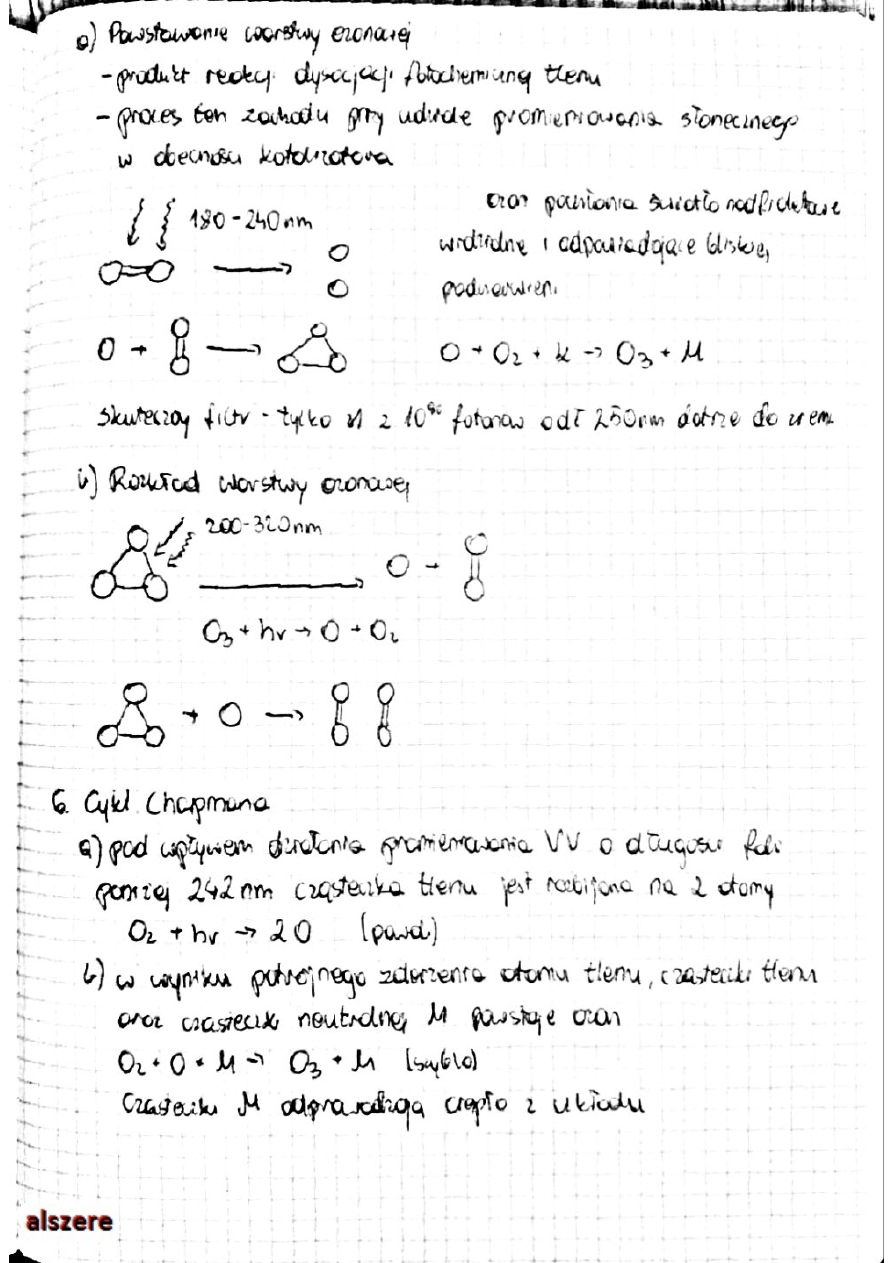 a) Powstawanie warstwy ozonowej
- produkt reakcji dysocjacji fotochemicznej tlenu
- proces ten zachodzi przy udziale promieniowania słonecznego
w obecności katalizatora
180-240nm
ozon pochłania światło nadfioletowe
widzialne i odpowiadające bliskiej
podczerwieni
O + O2 + M → O3 + M
skuteczny filtr - tylko z 10 fotonów o dł 250nm dotrze do ziemi
b) Rozkład warstwy ozonowej
200-320nm
O3 + hν → O + O2
6. Cykl Chapmana
a) pod wpływem działania promieniowania UV o długości fali
poniżej 242 nm cząsteczka tlenu jest rozbijana na 2 atomy
O2 + hν → 2O (powoli)
b) w wyniku potrójnego zderzenia atomu tlenu, cząsteczki tlenu
oraz cząsteczki neutralnej M powstaje ozon
O2 + O + M → O3 + M (szybko)
Cząsteczki M odprowadzają ciepło z układu
alszere